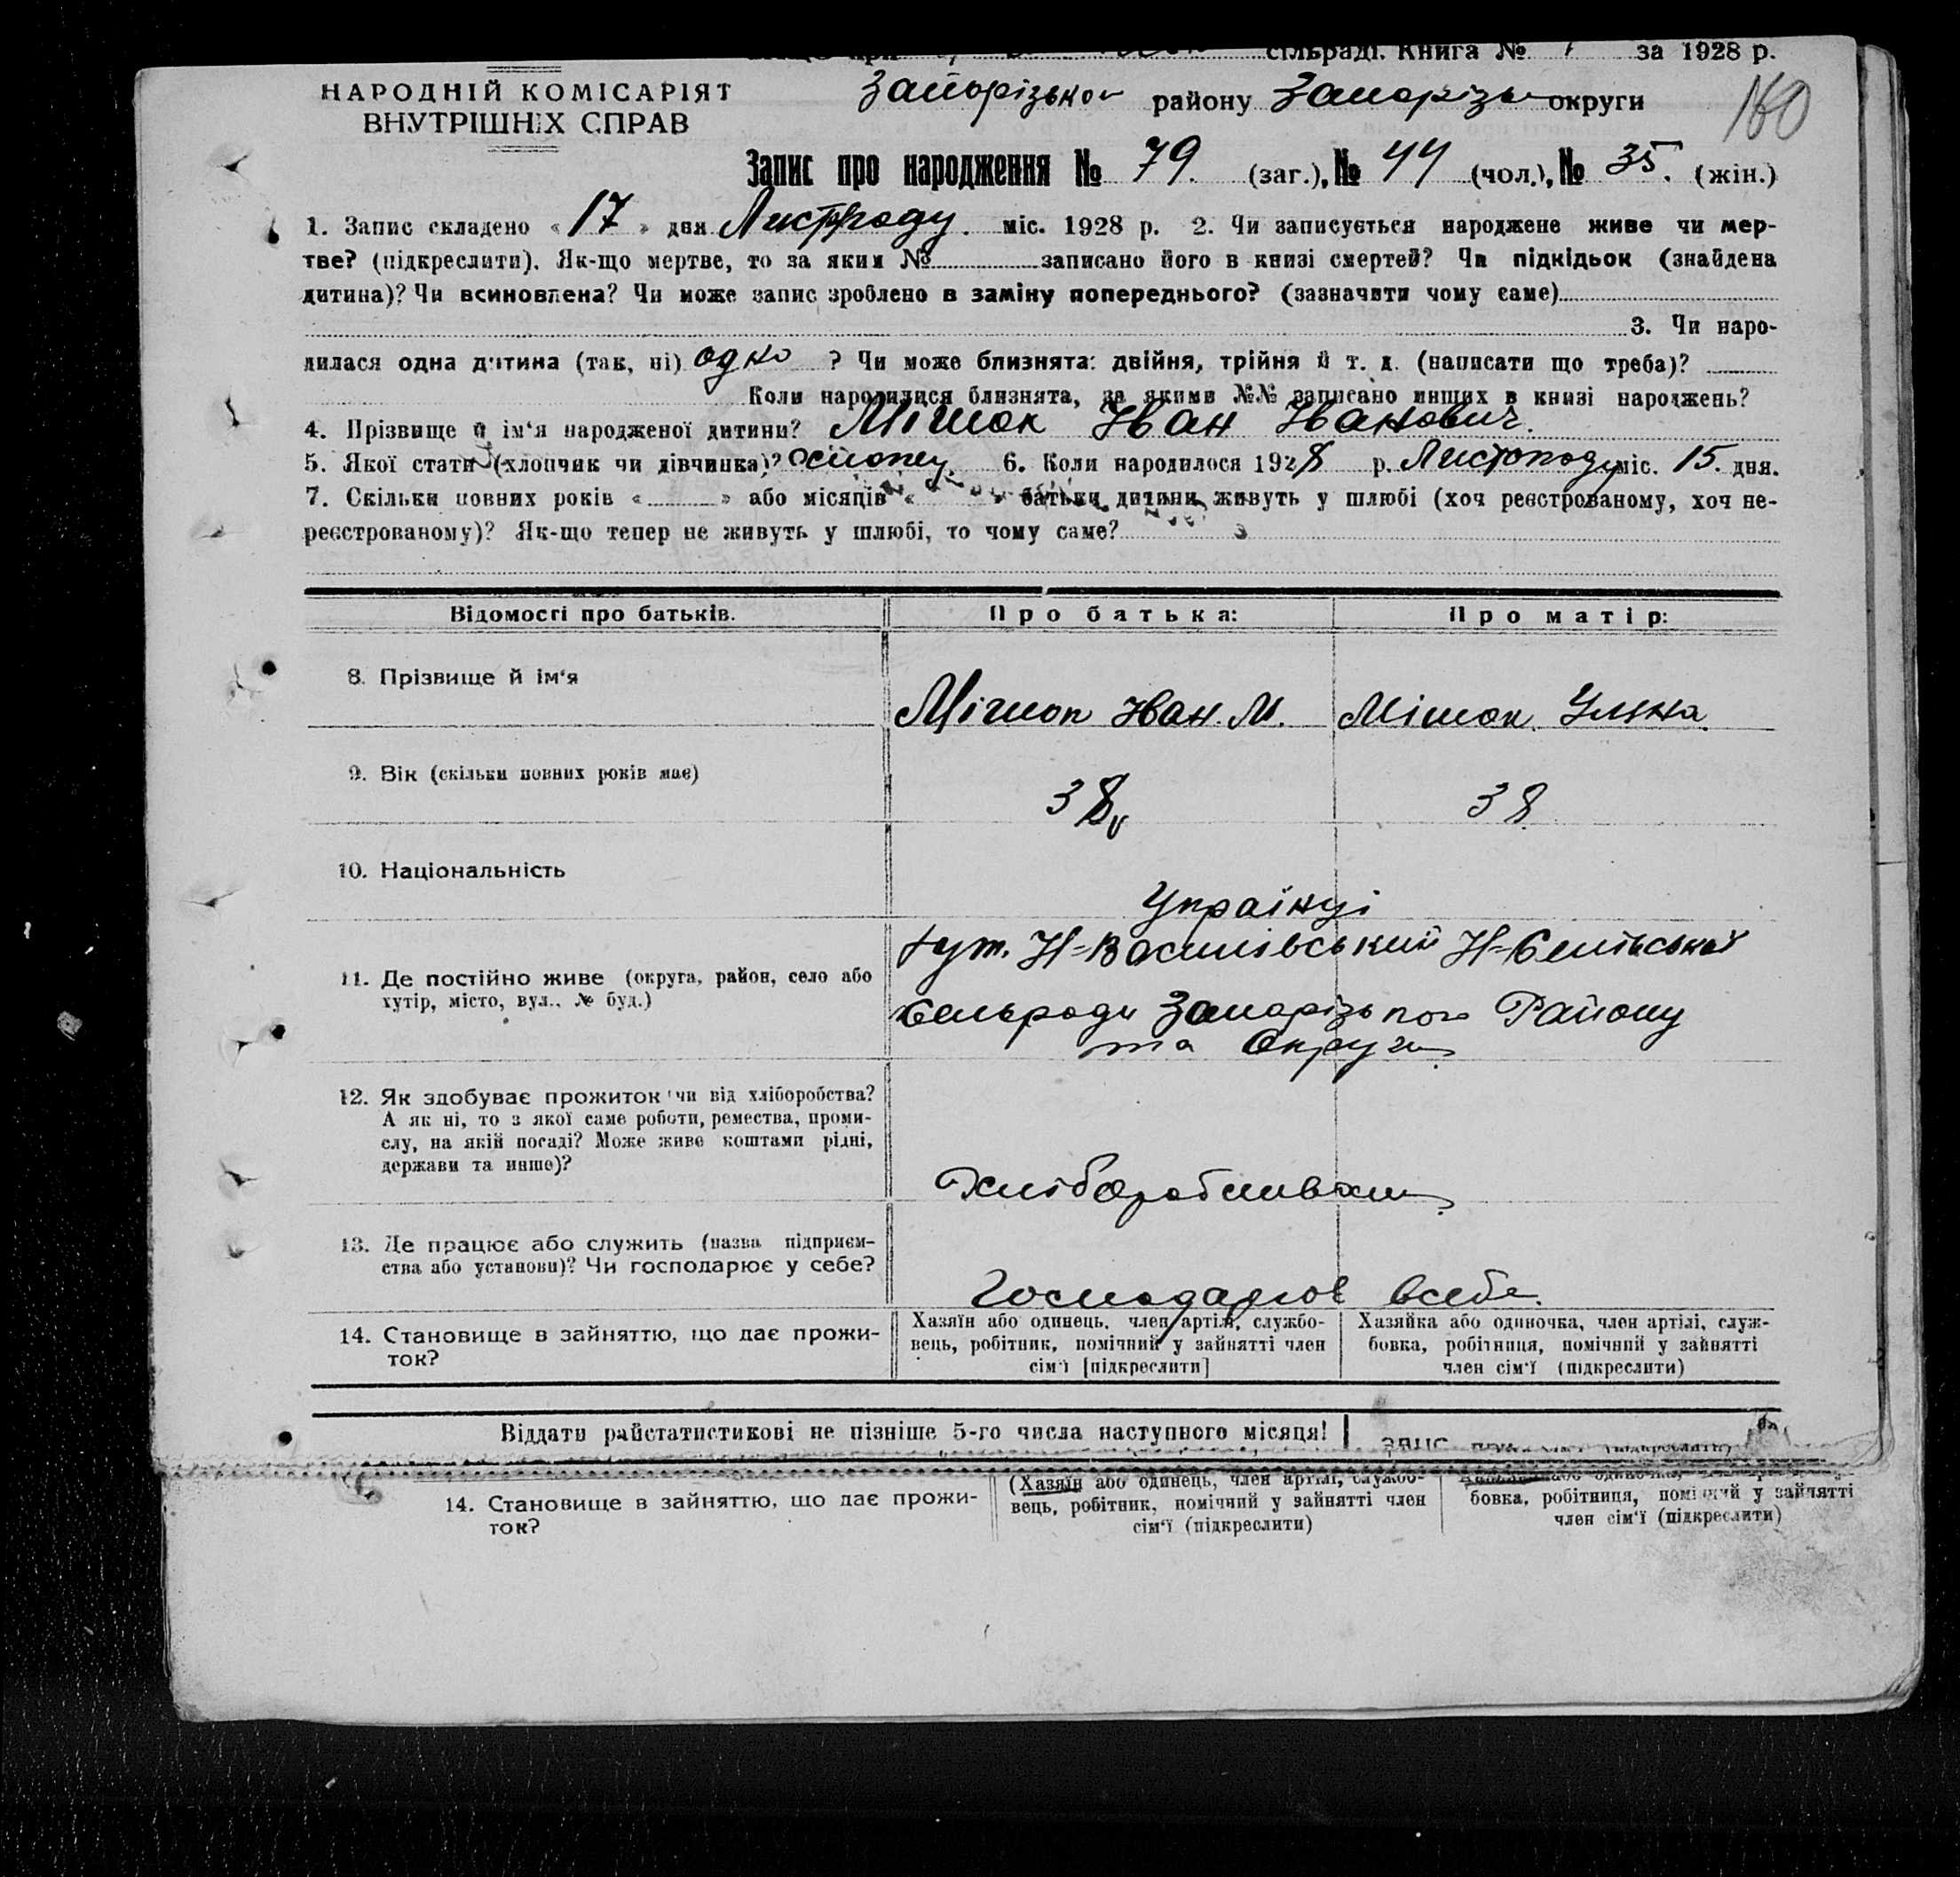 сільраді. Книга № за 1928 р.
НАРОДНІЙ КОМІСАРІЯТ
ВНУТРІШНІХ СПРАВ
Запорізького району Запорізьк округи
160
Запис про народження № 79. (заг.), № 44 (чол.), № 35. (жін.)
1. Запис складено « 17 » дня Листопаду. міс. 1928 р. 2. Чи записується народжене живе чи мер-
тве? (підкреслити). Як-що мертве, то за яким № записано його в книзі смертей? Чи підкідьок (знайдена
дитина)? Чи всиновлена? Чи може запис зроблено в заміну попереднього? (зазначити чому саме)
3. Чи наро-
дилася одна дитина (так, ні) одно ? Чи може близнята: двійня, трійня й т. д. (написати що треба)?
Коли народилися близнята, за якими №№ записано инших в книзі народжень?
4. Прізвище й ім‘я народженої дитини? Мішок Іван Іванович.
5. Якої статі (хлопчик чи дівчинка)? 6. Коли народилося 1928 р. Листопаду міс. 15. дня.
7. Скільки повних років « » або місяців « » батьки дитини живуть у шлюбі (хоч реєстрованому, хоч не-
реєстрованому)? Як-що тепер не живуть у шлюбі, то чому саме?
Відомості про батьків. Про батька: Про матір:
8. Прізвище й ім‘я
Мішок Іван. М. Мішок. Уляна.
9. Вік (скільки повних років має)
38 38
10. Національність
Українці
хут. Н-Василівський Н-
11. Де постійно живе (округа, район, село або
хутір, місто, вул., № буд.)
Сельради Запорізького Району
та Округи
12. Як здобуває прожиток чи від хліборобства?
А як ні, то з якої саме роботи, ремества, проми-
слу, на якій посаді? Може живе коштами рідні,
держави та инше)?
13. Де працює або служить (назва підприєм-
ства або установи)? Чи господарює у себе?
Господарює всебе.
14. Становище в зайняттю, що дає прожи-
ток?
Хазяїн або одинець, член артілі, службо-
вець, робітник, помічний у зайнятті член
сім‘ї [підкреслити]
Хазяйка або одиночка, член артілі, служ-
бовка, робітниця, помічний у зайнятті
член сім‘ї (підкреслити)
Віддати райстатистикові не пізніше 5-го числа наступного місяця!
14. Становище в зайняттю, що дає прожи-
ток?
(Хазяїн або одинець, член артілі, службо-
вець, робітник, помічний у зайнятті член
сім‘ї (підкреслити)
бовка, робітниця, помічний у зайнятті
член сім‘ї (підкреслити)